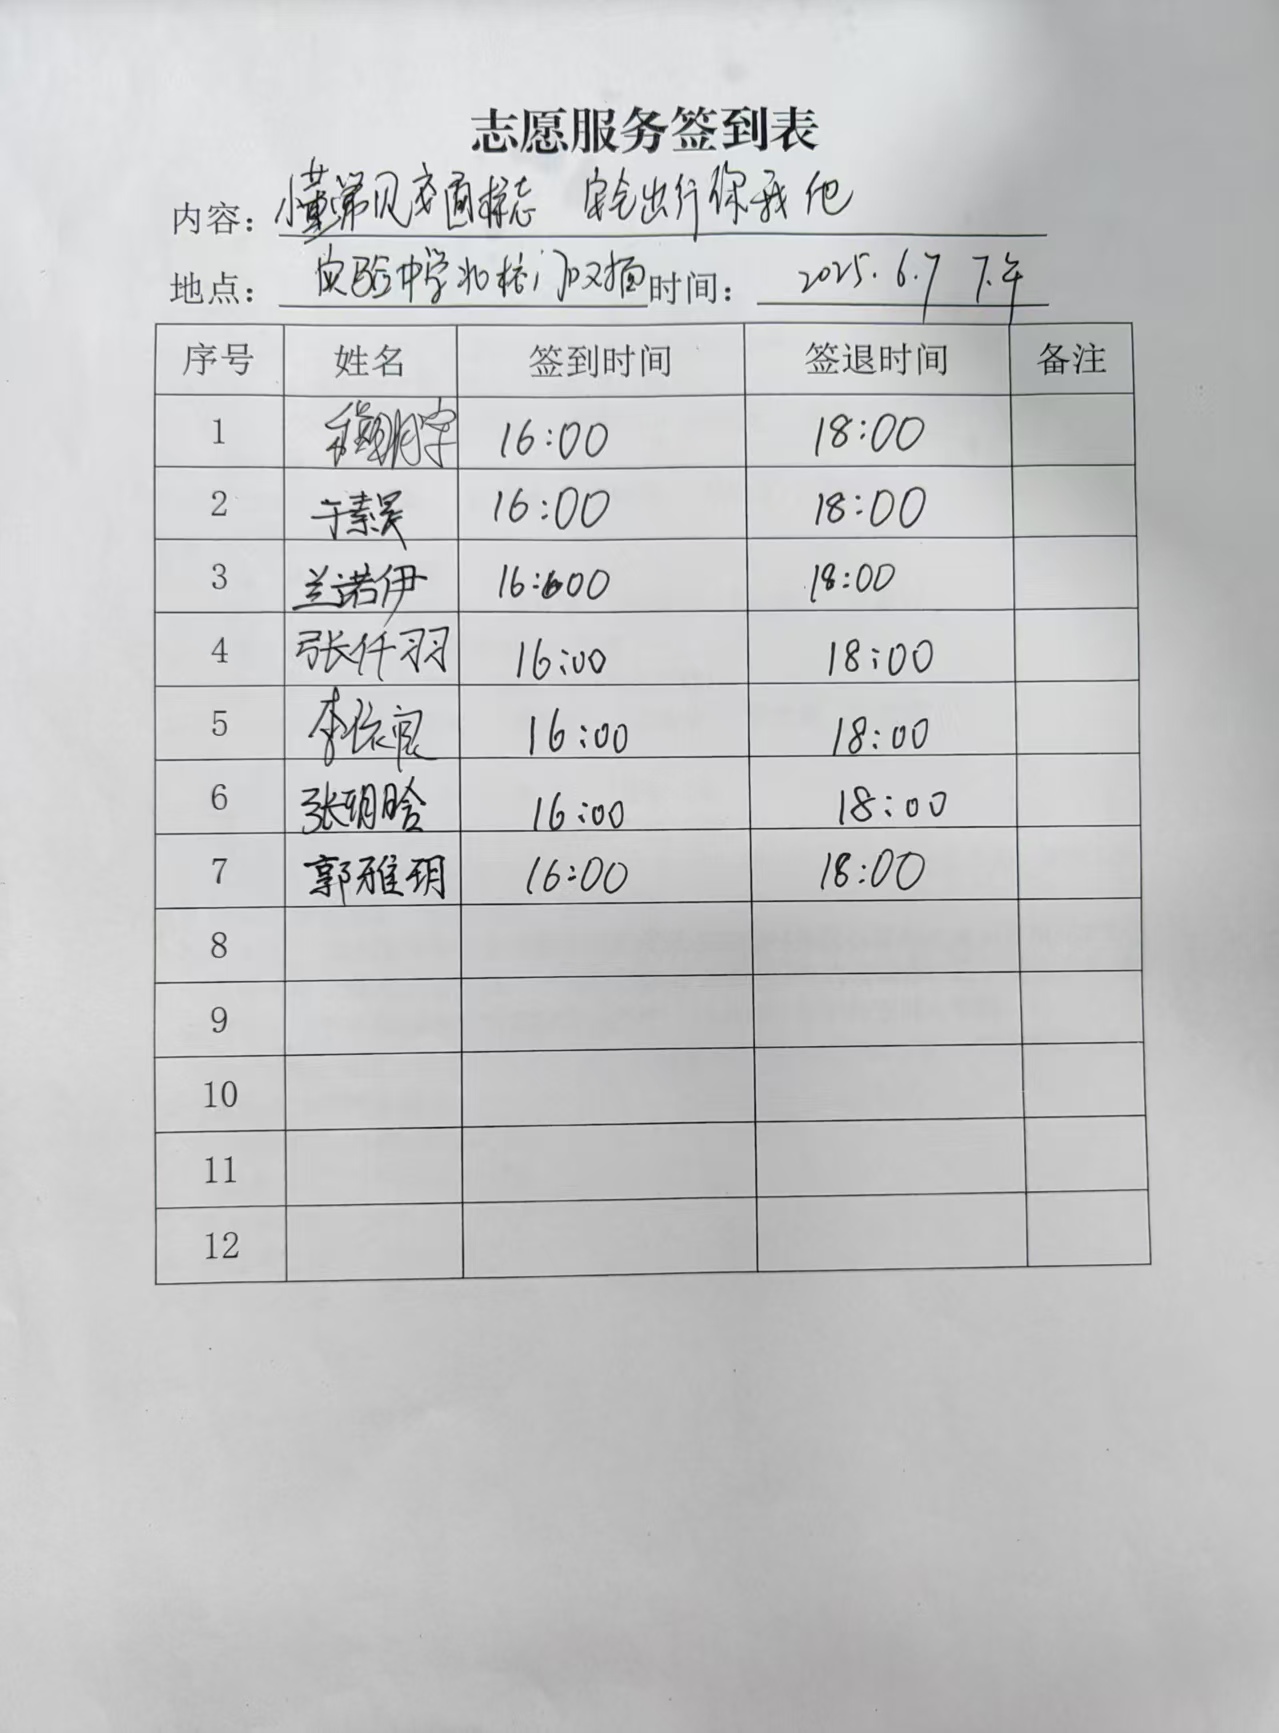 志愿服务签到表
内容: 懂常见交通标志 安全出行你我他
地点: 实验中学北校门对面 时间: 2025.6.7 下午
序号 姓名 签到时间 签退时间 备注
1 16:00 18:00
2 于素昊 16:00 18:00
3 兰诺伊 16:00 18:00
4 张仟羽 16:00 18:00
5 李依宸 16:00 18:00
6 张玥晗 16:00 18:00
7 郭雅玥 16:00 18:00
8
9
10
11
12